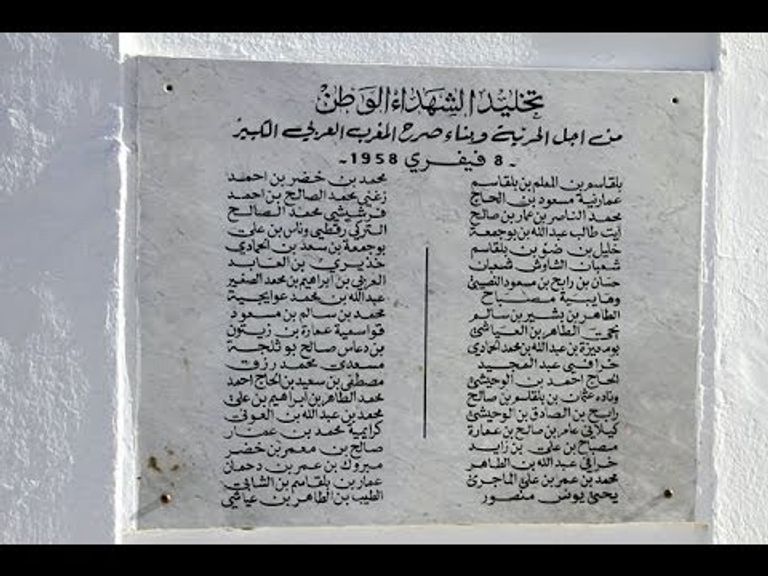 تخليد الشهداء الوطن
من اجل الحرية وبناء صرح المغرب العربي الكبير
- 8 فيفري 1958 -
بلقاسم بن المعلم بن بلقاسم
عمارنية مسعود بن الحاج
محمد الناصر بن عمار بن صالح
آيت طالب عبدالله بن بوجمعة
خليل بن ضو بن بلقاسم
شعبان الشاوش شعبان
حسان بن رابح بن مسعود النصيبي
وهايبية مصباح
الطاهر بن بشير بن سالم
يحيى الطاهر بن العياشي
بومعيزة بن عبدالله بن محمد الحادي
خرافي عبد المجيد
الحاج احمد بن الوحيشي
وناده عثمان بن بلقاسم بن صالح
رابح بن الصادق بن الوحيشي
كيلاني عامر بن صالح بن عمارة
مصباح بن علي بن زايد
خرافي عبدالله بن الطاهر
محمد بن عمر بن علي الماجري
يحيى يونس منصور
محمد بن خضر بن احمد
زغبي محمد الصالح بن احمد
قرشيشي محمد الصالح
التركي رقطيي وناس بن علي
بوجمعة بن سعد بن الحادي
خذيري بن العابد
العربي بن ابراهيم بن محمد الصغير
عبدالله بن محمد عوايجية
محمد بن سالم بن مسعود
قواسمية عمارة بن زيتون
بن دعاس صالح بوثلجة
مسعدي محمد رزق
مصطفى بن سعيد بن الحاج احمد
محمد الطاهر بن ابراهيم بن علي
محمد بن عبدالله بن العوني
كرايمية محمد بن عمار
صالح بن معمر بن خضر
مبروك بن عمر بن دحمان
عمار بن بلقاسم بن الشابي
الطيب بن الطاهر بن عياشي